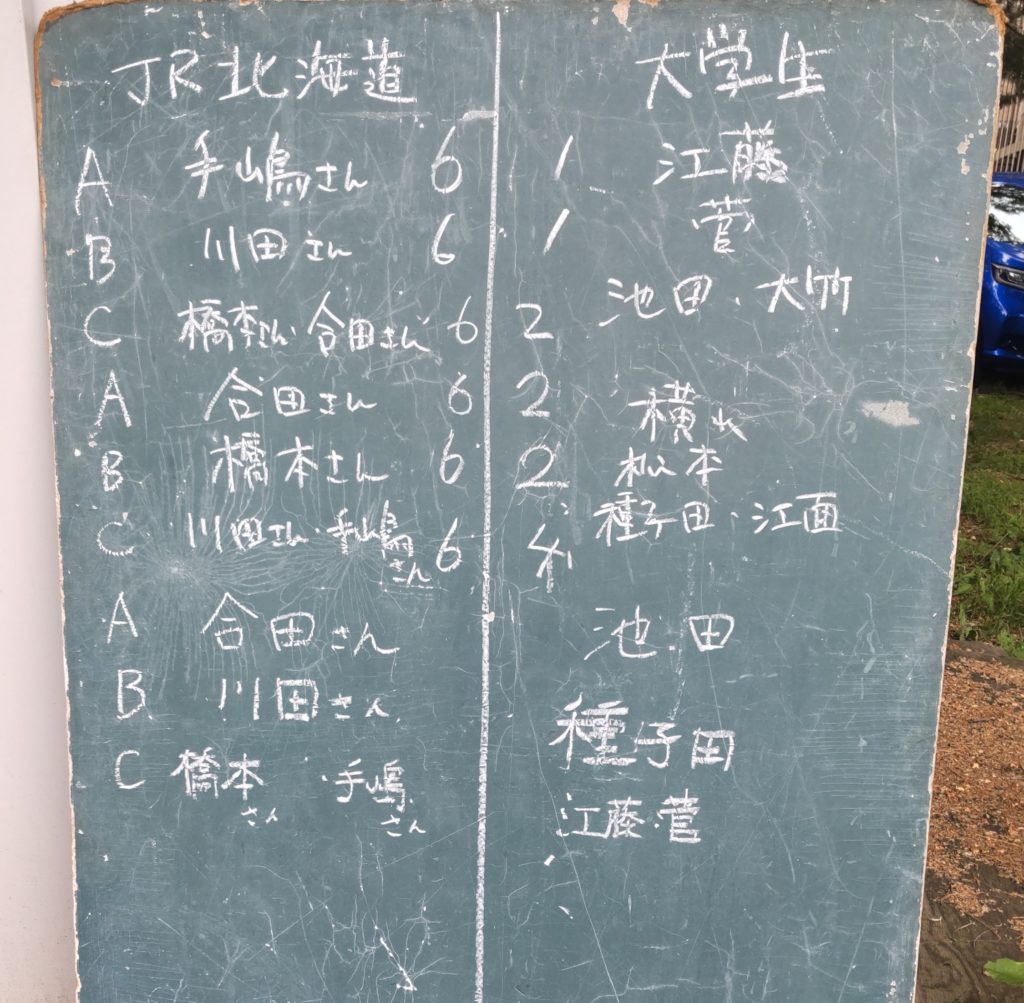 JR北海道 大学生
A 手嶋さん 6 1 江藤
B 川田さん 6 1 菅
C 橋本さん・合田さん 6 2 池田・大竹
A 合田さん 6 2
B 橋本さん 6 2 松本
C 川田さん・手嶋さん 6 4 種子田・江面
A 合田さん 池田
B 川田さん 種子田
C 橋本さん・手嶋さん 江藤・菅